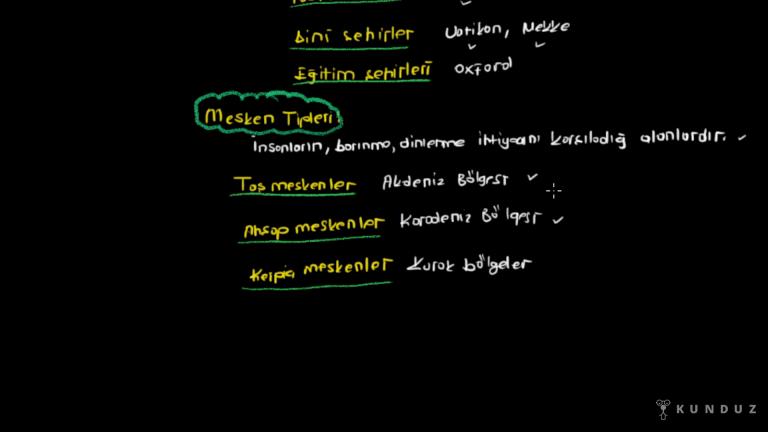 Dinî şehirler Vatikan, Mekke
Eğitim şehirleri Oxford
Mesken Tipleri:
İnsanların, barınma, dinlenme ihtiyacını karşıladığı alanlardır.
Taş meskenler Akdeniz Bölgesi
Ahşap meskenler Karadeniz Bölgesi
Kerpiç meskenler Kurak bölgeler
KUNDUZ